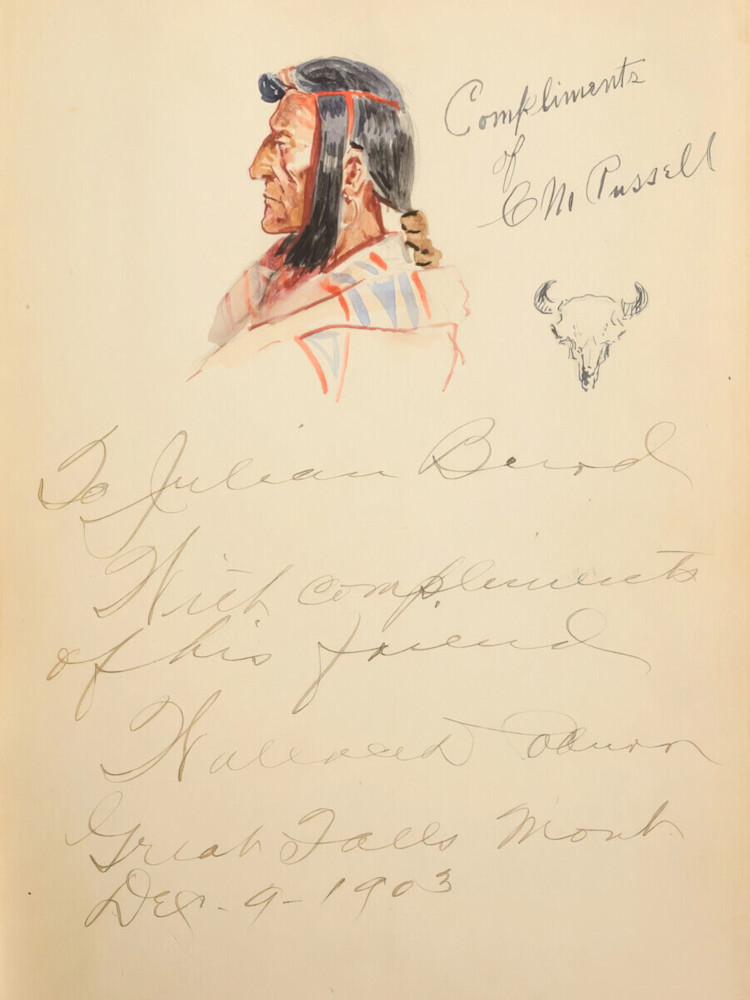 Compliments
of
C M Russell
To Julian
With compliments
of his friend
Great Falls Mont
Dec. 9 - 1903